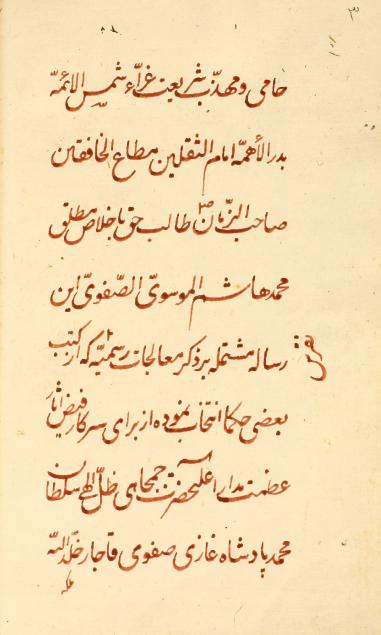 ۳
حامی و مهذّب شریعت غرّاء شمس الائمّه
بدر الأهمّه امام الثقلین مطاع الخافقین
صاحب الزّمان طالب حق باخلاص مطلق
محمد هاشم الموسویّ الصّفویّ این
رساله مشتمله بر ذکر معالجات رسمیّه که از کتب
بعضی حکما انتخاب نموده از برای سرکار فیض آثار
عظمت مدار اعلیحضرت جمجاهی ظلّ الهی سلطان
محمد پادشاه غازی صفوی قاجار خلّد الله